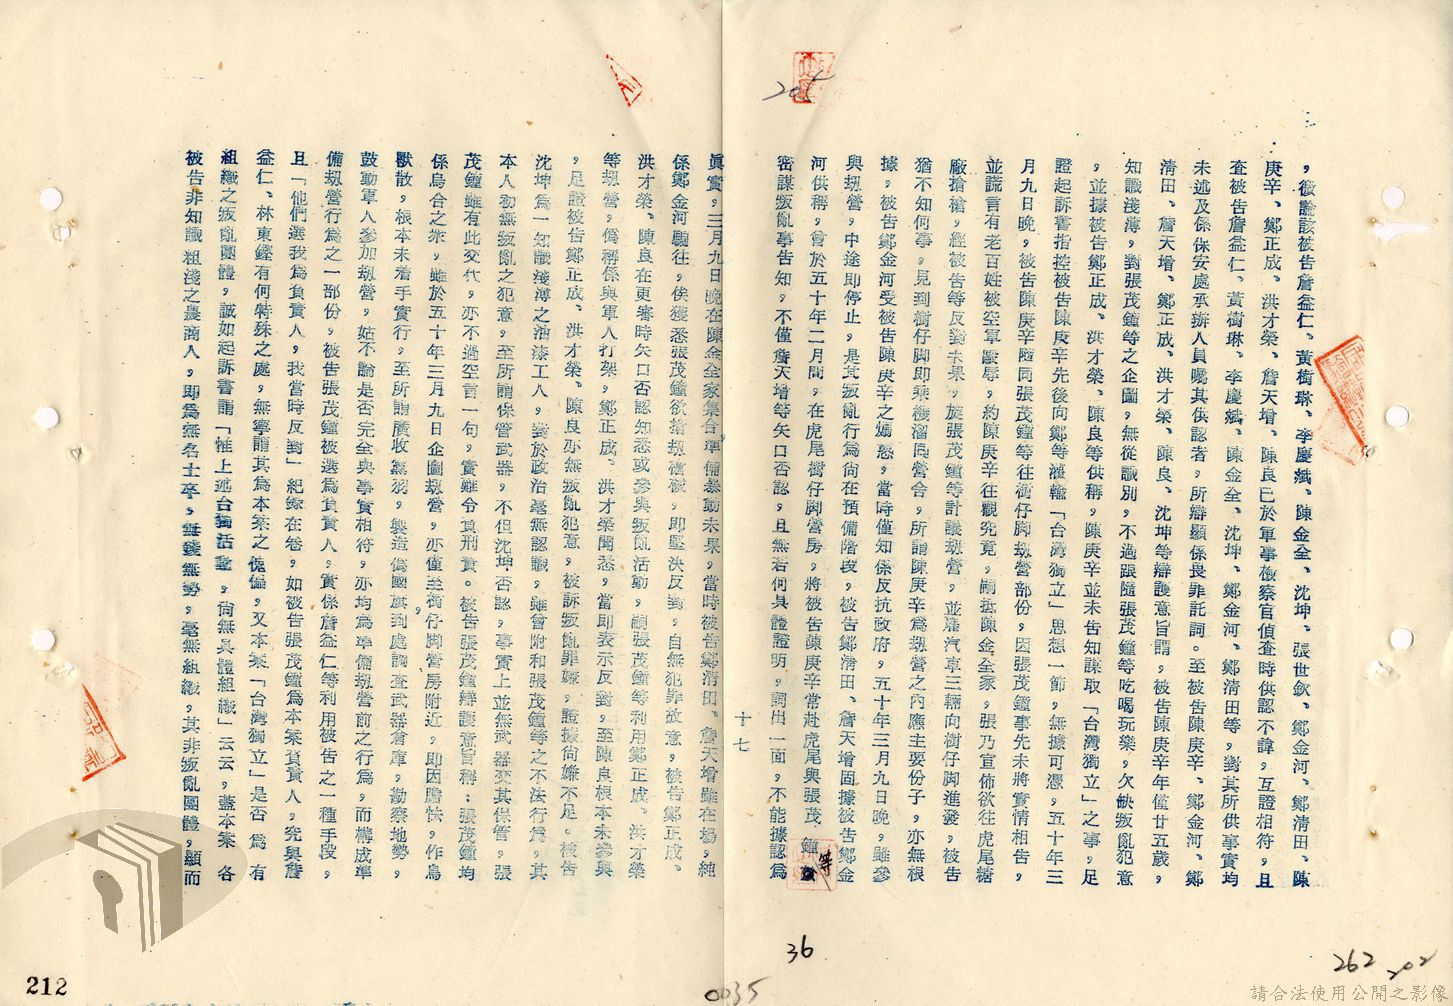 ，微論該被告詹益仁、黃樹琳、李慶斌、陳金全、沈坤、張世欽、鄭金河、鄭清田、陳
庚辛、鄭正成、洪才榮、詹天增、陳良已於軍事檢察官偵查時供認不諱，互證相符，且
查被告詹益仁、黃樹琳、李慶斌、陳金全、沈坤、鄭金河、鄭清田等，對其所供事實均
未述及係保安處承辦人員囑其供認者，所辯顯係畏罪託詞。至被告陳庚辛、鄭金河、鄭
清田、詹天增、鄭正成、洪才榮、陳良、沈坤等辯護意旨謂，被告陳庚辛年僅廿五歲，
知識淺薄，對張茂鐘等之企圖，無從識別，不過張隨張茂鐘等吃喝玩樂，欠缺叛亂犯意
，並據被告鄭正成、洪才榮、陳良等供稱，陳庚辛並未告知謀取「台灣獨立」之事，足
證起訴書指控被告陳庚辛先後向鄭等灌輸「台灣獨立」思想一節，無據可憑，五十年三
月九日晚，被告陳庚辛隨同張茂鐘等往樹仔脚劫營部份，因張茂鐘事先未將實情相告，
並謊言有老百姓被空軍毆辱，約陳庚辛往觀究竟，嗣抵陳金全家，張乃宣佈欲往虎尾糖
廠搶槍，經被告等反對未果，旋張茂鐘等計議劫營，並雇汽車三輛向樹仔脚進發，被告
猶不知何事，見到樹仔脚即乘機溜回營舍，所謂陳庚辛為劫營之內應主要份子，亦無根
據，被告鄭金河受被告陳庚辛之煽惑，當時僅知係反抗政府，五十年三月九日晚，雖參
與劫營，中途即停止，是其叛亂行為尚在預備階段，被告鄭清田、詹天增固據被告鄭金
河供稱，曾於五十年二月間，在虎尾樹仔脚營房，將被告陳庚辛常赴虎尾與張茂鐘等
密謀叛亂事告知，不僅詹天增等矢口否認，且無若何具體證明，詞出一面，不能據認為
十七
真實，三月九日晚在陳金全家集合準備暴動未果，當時被告鄭清田、詹天增雖在場，純
係鄭金河騙往，俟獲悉張茂鐘欲搶劫槍械，即堅決反對，自無犯罪故意，被告鄭正成、
洪才榮、陳良在更審時矢口否認知悉或參與叛亂活動，嗣張茂鐘等利用鄭正成、洪才榮
等劫營，偽稱係與軍人打架，鄭正成、洪才榮聞悉，當即表示反對，至陳良根本未參與
，足證被告鄭正成、洪才榮、陳良亦無叛亂犯意，被訴叛亂罪嫌，證據尚嫌不足。被告
沈坤為一知識淺薄之油漆工人，對於政治毫無認識，雖曾附和張茂鐘等之不法行為，其
本人初無叛亂之犯意，至所謂保管武器，不但沈坤否認，事實上並無武器交其保管，張
茂鐘雖有此交代，亦不過空言一句，實難令負刑責。被告張茂鐘辯護意旨稱：張茂鐘均
係烏合之衆，雖於五十年三月九日企圖劫營，亦僅至樹仔脚營房附近，即因膽怯，作鳥
獸散，根本未着手實行，至所謂廣收黨羽，製造偽國旗到處調查武器倉庫，勘察地勢，
鼓動軍人參加劫營，姑不論是否完全與事實相符，亦均為準備劫營前之行為，而構成準
備劫營行為之一部份，被告張茂鐘被選為負責人，實係詹益仁等利用被告之一種手段，
且「他們選我為負責人，我當時反對」紀錄在卷，如被告張茂鐘為本案負責人，究與詹
益仁、林東鏗有何特殊之處，無寧謂其為本案之傀儡，又本案「台灣獨立」是否為有
組織之叛亂團體，誠如起訴書謂「惟上述台獨活動，尚無具體組織」云云，蓋本案各
被告非知識粗淺之農商人，即為無名士卒，無錢無勢，毫無組織，其非叛亂團體，顯而
205
36
0035
262
202
212
請合法使用公開之影像